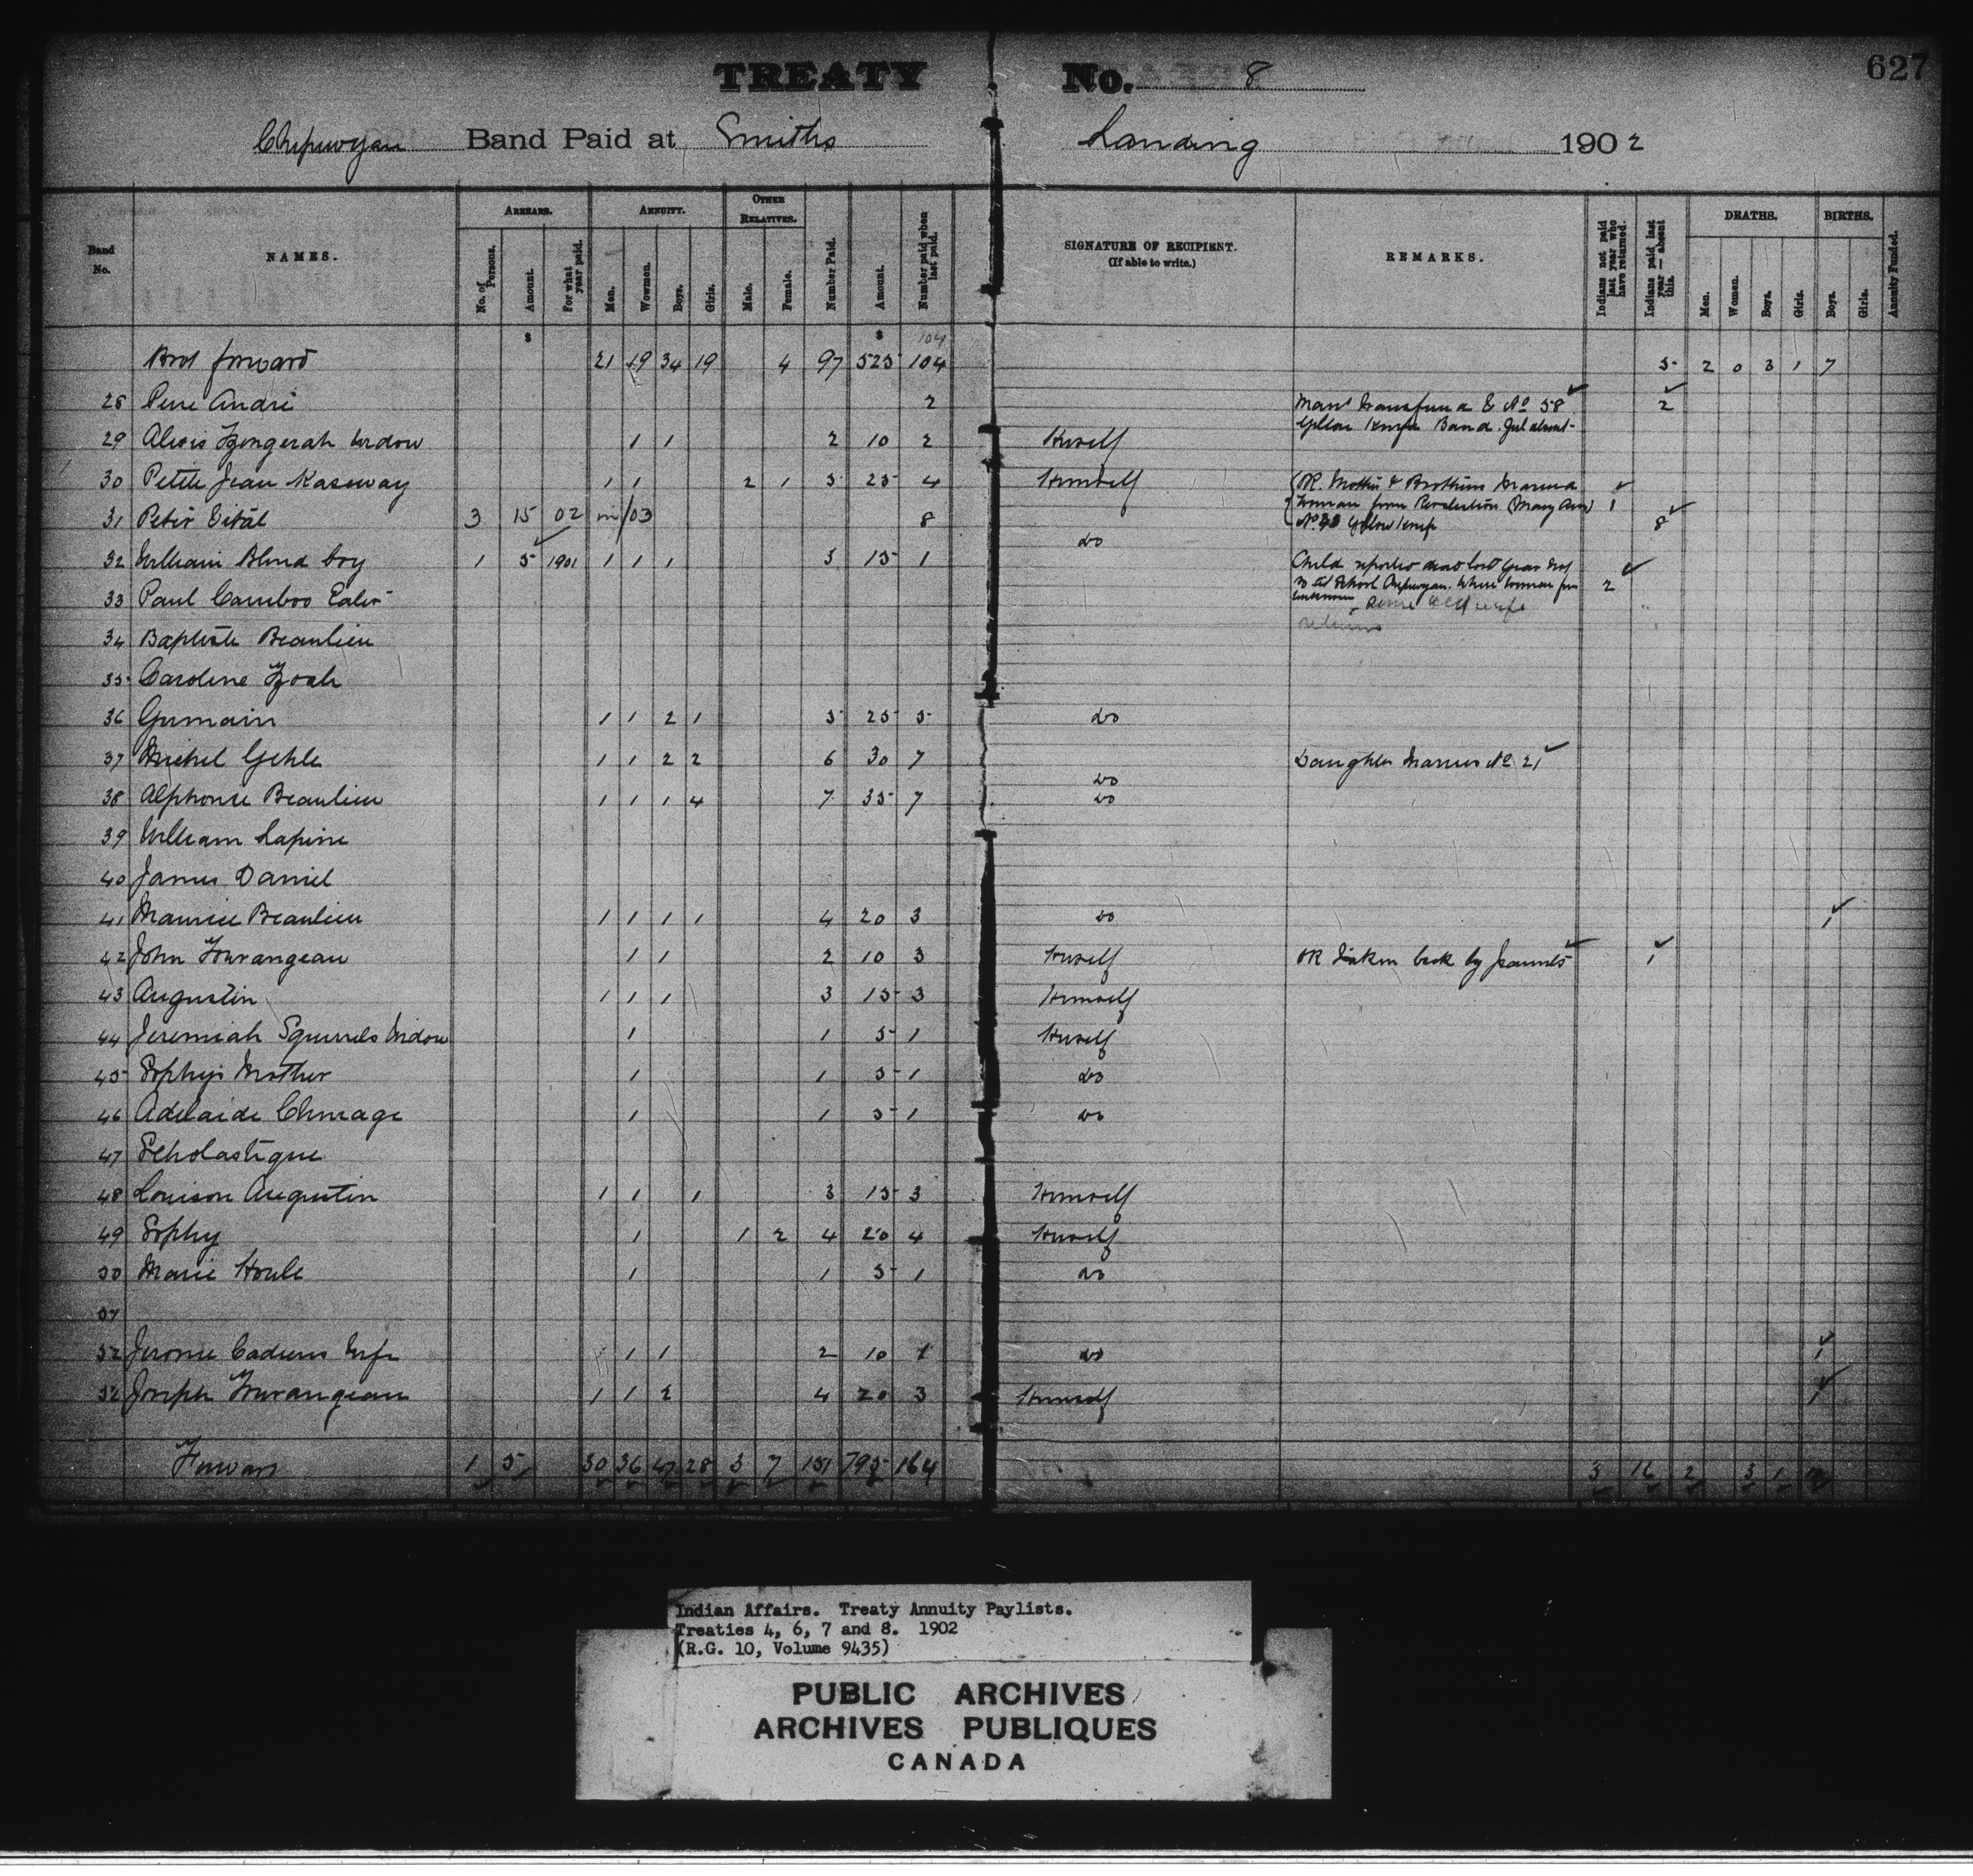 TREATY No. 8
627
Chipewyan Band Paid at Smiths Landing 1902
Band No.
NAMES.
ARREARS.
No. of Persons.
Amount.
For what year paid.
ANNUITY.
Men.
Women.
Boys.
Girls.
OTHER RELATIVES.
Male.
Female.
Number Paid.
Amount.
Number paid when last paid.
SIGNATURE OF RECIPIENT.
(If able to write.)
REMARKS.
Indians not paid last year who have returned.
Indians paid last year — absent this.
DEATHS.
Men.
Women.
Boys.
Girls.
BIRTHS.
Boys.
Girls.
Annuity Funded.
$ $ 104
Brot forward 21 19 34 19 4 97 525 104 5 2 0 3 1 7
28 Pierre André 2 Man transferred to No 58 2
Yellow Knife Band. Girl absent
29 Alexis Widow 1 1 2 10 2 Herself
30 Petite Jean Kaseway 1 1 2 1 5 25 4 Himself OR. Mother & Brothers Married 1
31 Peter Vital 3 15 02 in/03 8 Woman from Resolution (Mary Ann) 8
No Yellow Knife
do
32 William Blind boy 1 5 1901 1 1 1 3 15 1 Child reported dead last year not 2
so at School Chipewyan. Where woman from
unknown
33 Paul Cariboo Eater
returns
34 Baptiste Beaulieu
35 Caroline
36 Germain 1 1 2 1 5 25 5 do
37 Michel Gehle 1 1 2 2 6 30 7 do Daughter Marries No 21
38 Alphonse Beaulieu 1 1 1 4 7 35 7 do
39 William Lapine
40 James Daniel
41 Maurice Beaulieu 1 1 1 1 4 20 3 do 1
42 John Tourangeau 1 1 2 10 3 Herself OR Taken back by parents 1
43 Augustin 1 1 1 3 15 3 Himself
44 Jeremiah Squirrels Widow 1 1 5 1 Herself
45 Sophy's Mother 1 1 5 1 do
46 Adelaide 1 1 5 1 do
47 Scholastique
48 Louison Augustin 1 1 1 3 15 3 Himself
49 Sophy 1 1 2 4 20 4 Herself
50 Marie Houle 1 1 5 1 do
51
52 Jerome Wife 1 1 2 10 1 do 1
Joseph Tourangeau 1 1 2 4 20 3 Himself 1
Forward 1 5 30 36 47 28 3 7 151 795 164 3 16 2 3 1
Indian Affairs. Treaty Annuity Paylists.
Treaties 4, 6, 7 and 8. 1902
(R.G. 10, Volume 9435)
PUBLIC ARCHIVES
ARCHIVES PUBLIQUES
CANADA